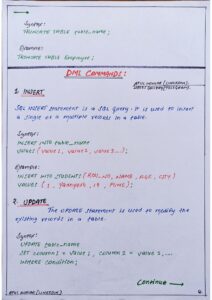 Syntax:
TRUNCATE TABLE table_name;
Example:
TRUNCATE TABLE Employee;
DML COMMANDS:
ATUL KUMAR (LINKEDIN).
1. INSERT
SQL INSERT statement is a SQL query. It is used to insert
a single or a multiple records in a table.
Syntax:
INSERT INTO table_name
VALUES (value 1, value 2, value 3...);
Example:
INSERT INTO STUDENTS (ROLL_NO, NAME, AGE, CITY)
VALUES (1, , 19, PUNE);
2. UPDATE
The UPDATE statement is used to modify the
existing records in a table.
Syntax:
UPDATE table_name
SET column1 = value1, column2 = value2, ...
WHERE condition;
Continue
ATUL KUMAR (LINKEDIN)